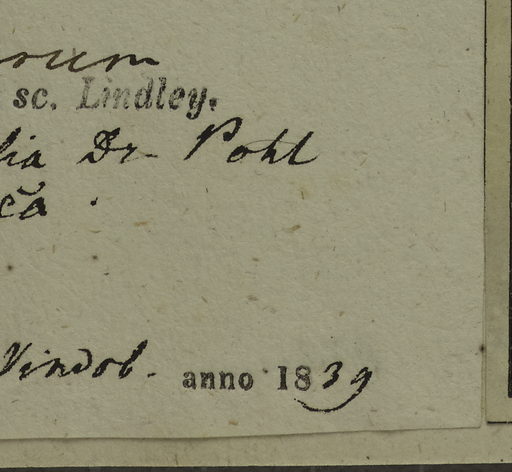 rum
sc. Lindley.
lia Dr Pohl
Vindob. anno 1839